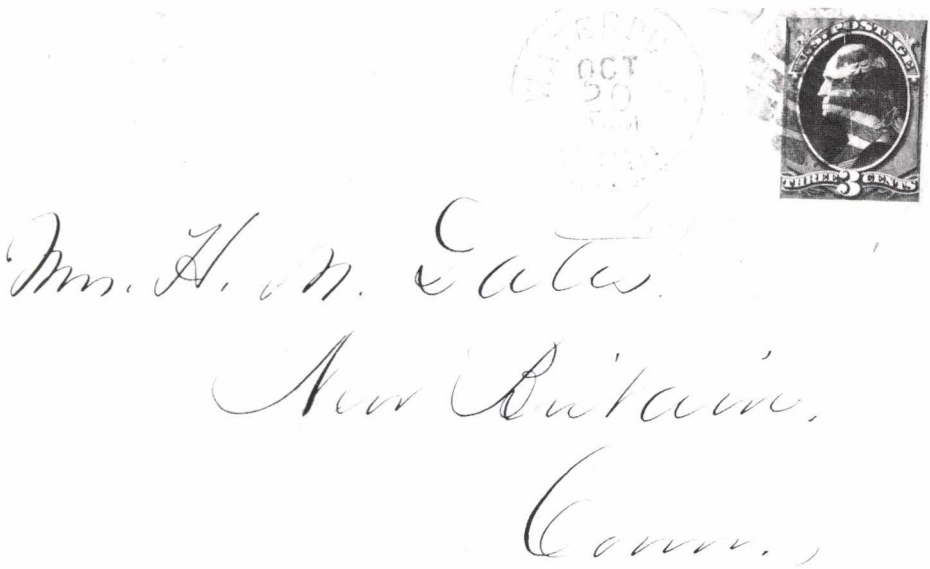 OCT
20
U.S. POSTAGE
THREE 3 CENTS
Mrs. H. M. Gates.
New Britain,
Conn.,